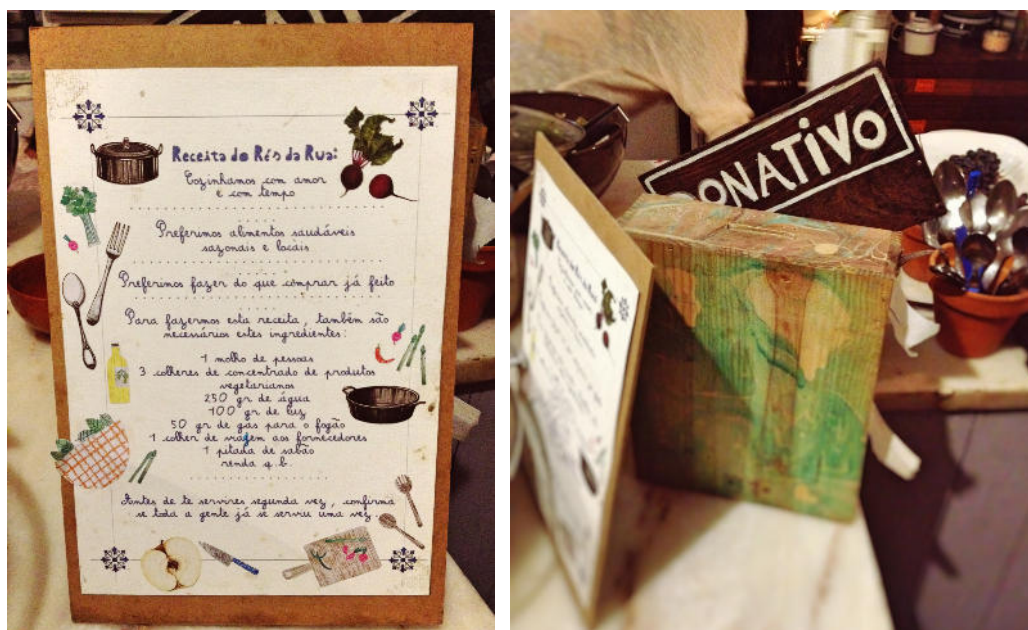 Receita do Rés da Rua:
Cozinhamos com amor
e com tempo
Preferimos alimentos saudáveis
sazonais e locais
Preferimos fazer do que comprar já feito
Para fazermos esta receita, também são
necessários estes ingredientes:
1 molho de pessoas
3 colheres de concentrado de produtos
vegetarianos
250 gr de água
100 gr de luz
50 gr de gás para o fogão
1 colher de viajem aos fornecedores
1 pitada de sabão
renda q.b.
Antes de te servires segunda vez, confirma
se toda a gente já se serviu uma vez.
DONATIVO